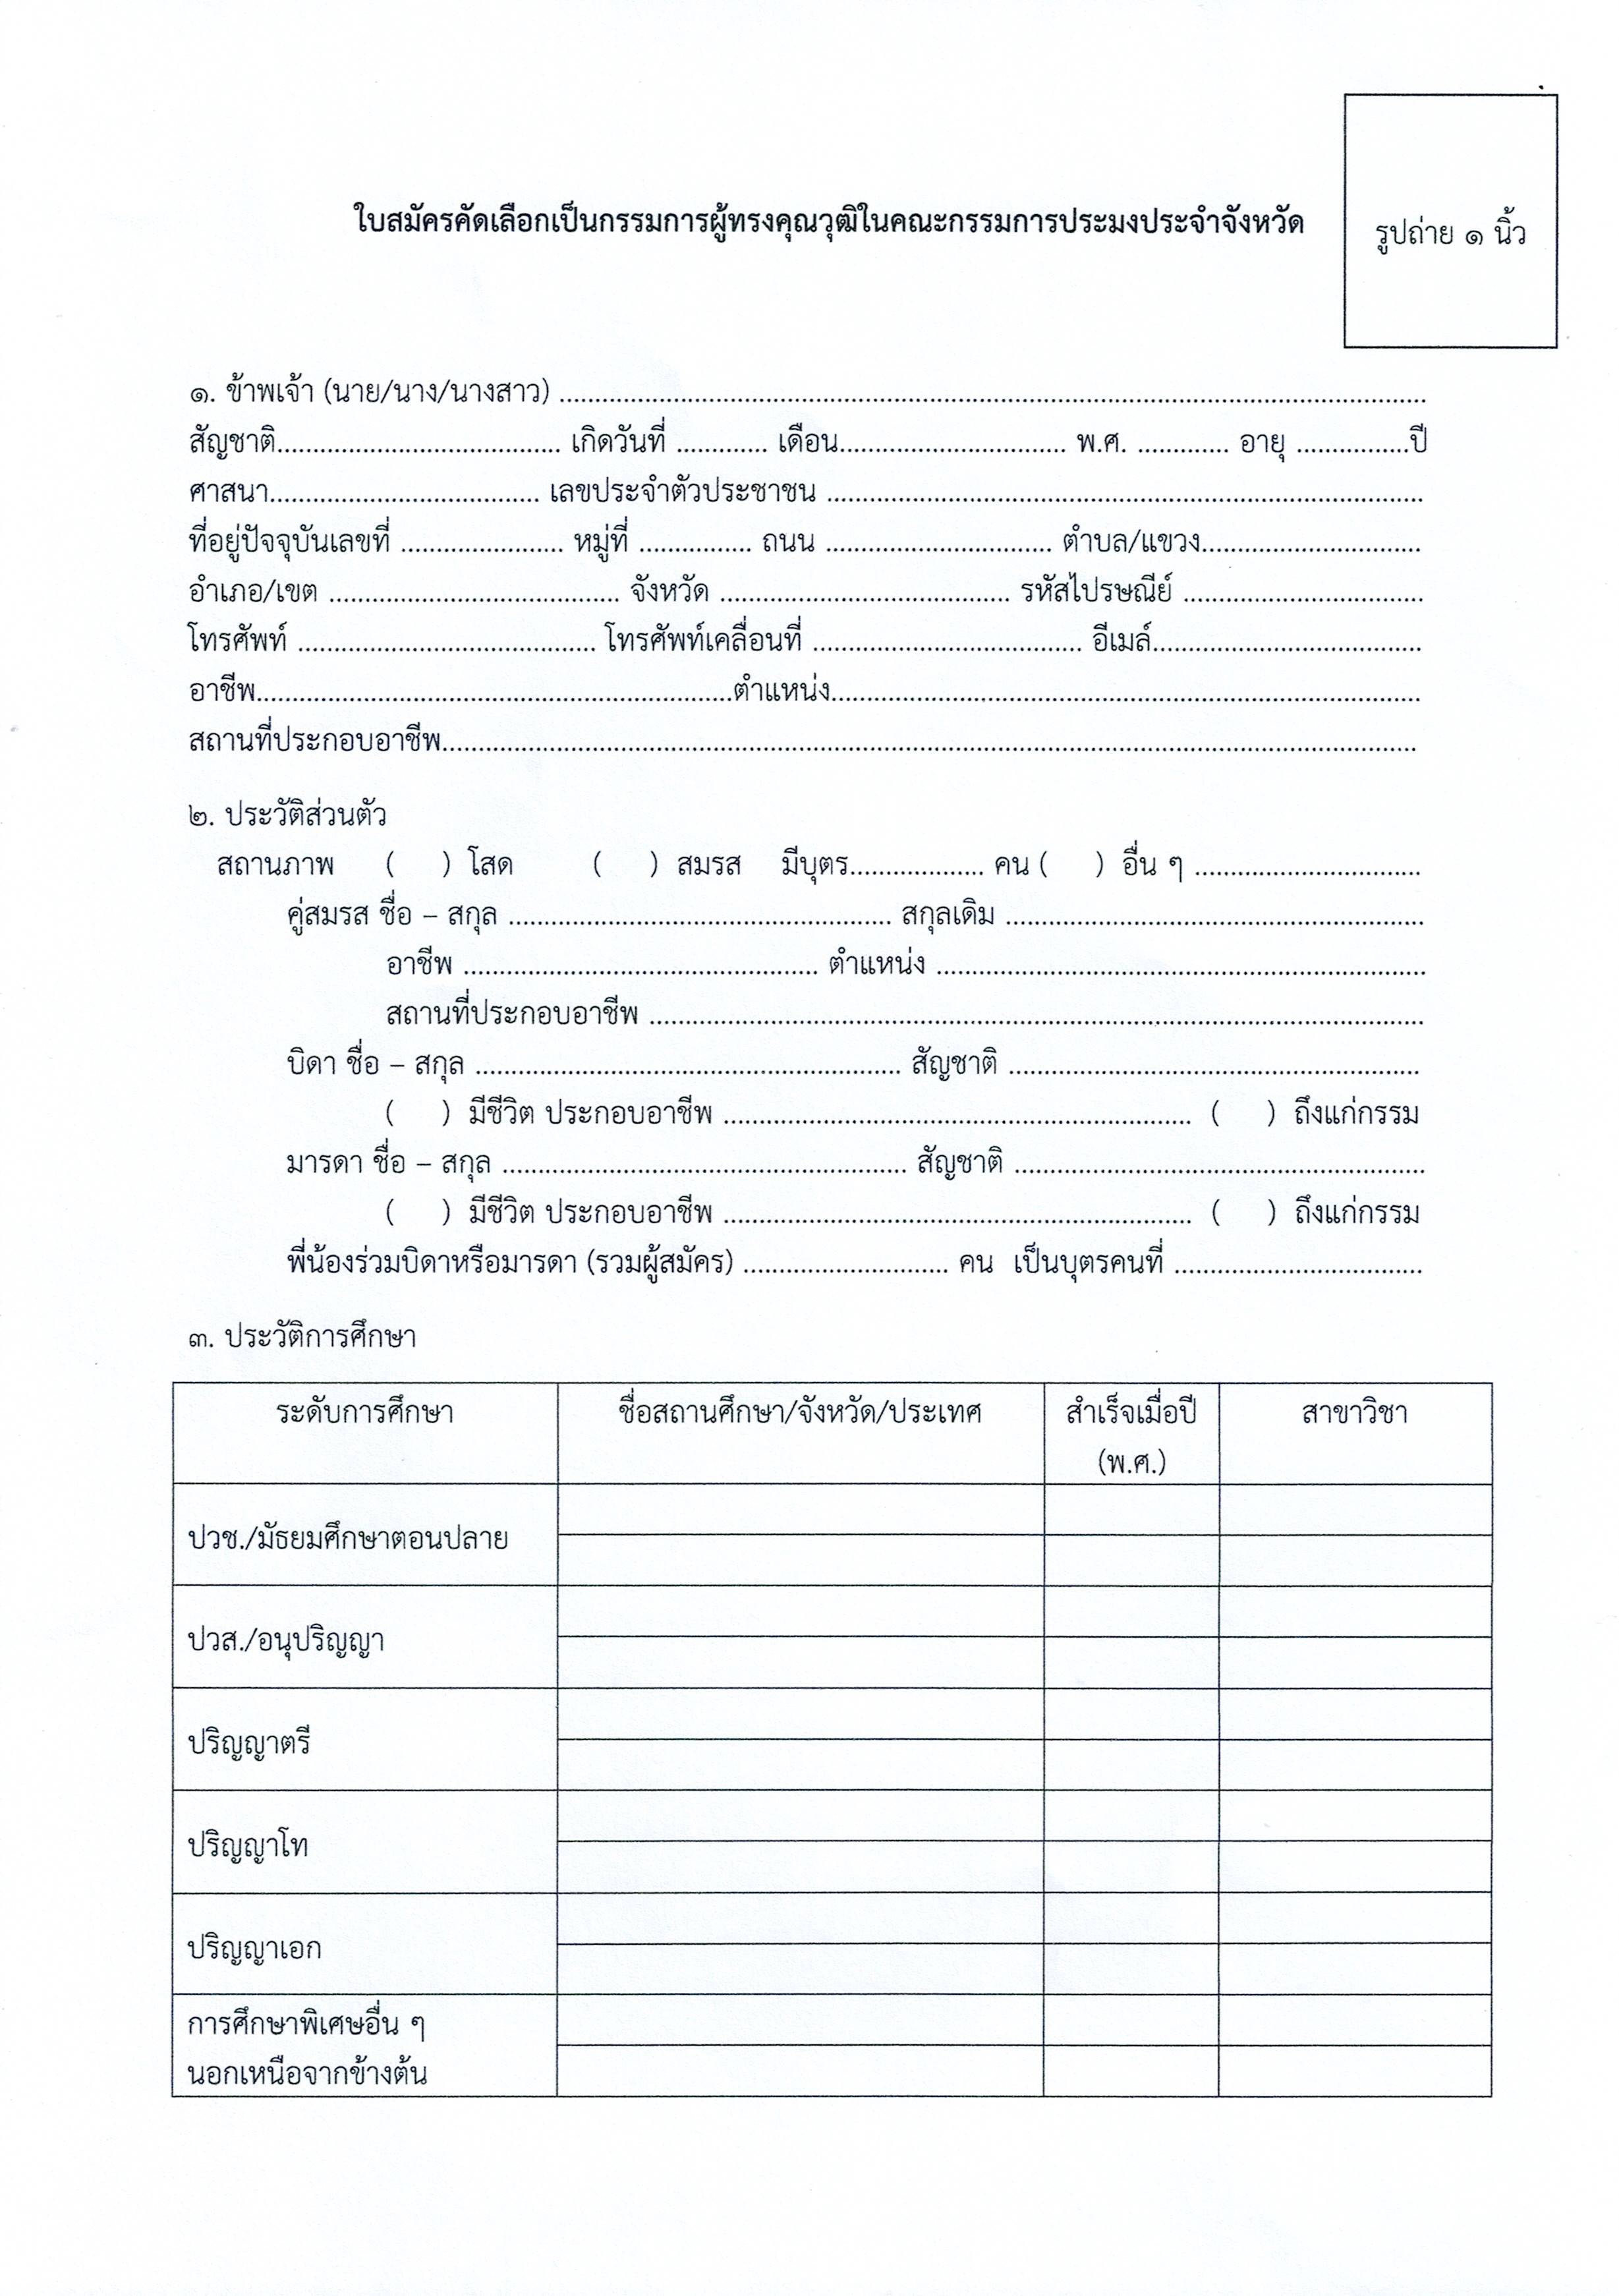 ใบสมัครคัดเลือกเป็นกรรมการผู้ทรงคุณวุฒิในคณะกรรมการประมงประจำจังหวัด
รูปถ่าย ๑ นิ้ว
๑. ข้าพเจ้า (นาย/นาง/นางสาว) ........................................
สัญชาติ.................... เกิดวันที่ ............. เดือน.................... พ.ศ. ............. อายุ ................ปี
ศาสนา.................... เลขประจำตัวประชาชน ........................................
ที่อยู่ปัจจุบันเลขที่ .................... หมู่ที่ ................ ถนน .................... ตำบล/แขวง....................
อำเภอ/เขต .................... จังหวัด .................... รหัสไปรษณีย์ ....................
โทรศัพท์ .................... โทรศัพท์เคลื่อนที่ .................... อีเมล์....................
อาชีพ....................ตำแหน่ง....................
สถานที่ประกอบอาชีพ........................................
๒. ประวัติส่วนตัว
สถานภาพ ( ) โสด ( ) สมรส มีบุตร................... คน ( ) อื่น ๆ ....................
คู่สมรส ชื่อ – สกุล .................... สกุลเดิม ....................
อาชีพ .................... ตำแหน่ง ....................
สถานที่ประกอบอาชีพ ........................................
บิดา ชื่อ – สกุล .................... สัญชาติ ....................
( ) มีชีวิต ประกอบอาชีพ .................... ( ) ถึงแก่กรรม
มารดา ชื่อ – สกุล .................... สัญชาติ ....................
( ) มีชีวิต ประกอบอาชีพ .................... ( ) ถึงแก่กรรม
พี่น้องร่วมบิดาหรือมารดา (รวมผู้สมัคร) .................... คน เป็นบุตรคนที่ ....................
๓. ประวัติการศึกษา
ระดับการศึกษา ชื่อสถานศึกษา/จังหวัด/ประเทศ สำเร็จเมื่อปี สาขาวิชา
(พ.ศ.)
ปวช./มัธยมศึกษาตอนปลาย
ปวส./อนุปริญญา
ปริญญาตรี
ปริญญาโท
ปริญญาเอก
การศึกษาพิเศษอื่น ๆ
นอกเหนือจากข้างต้น